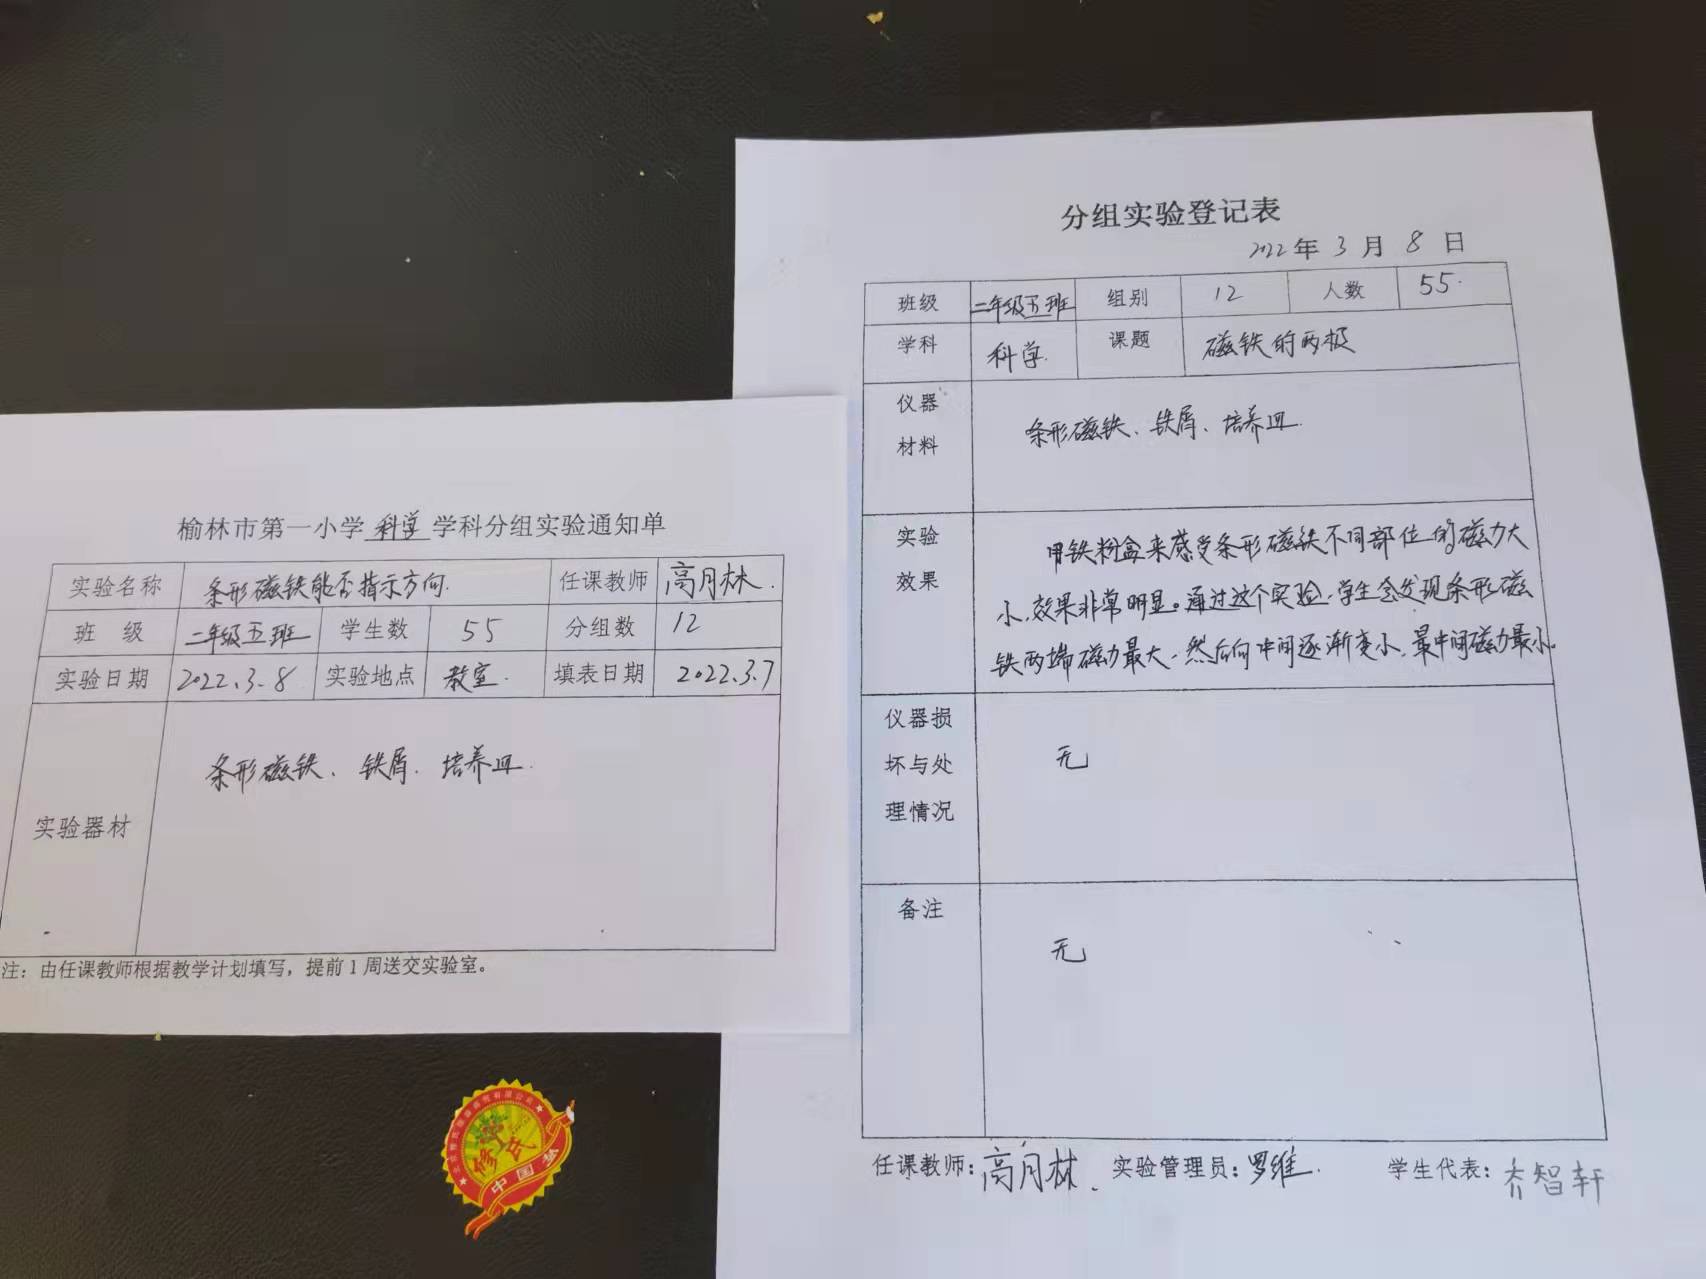 榆林市第一小学科学学科分组实验通知单
实验名称 条形磁铁能否指示方向. 任课教师 高月林.
班 级 二年级五班 学生数 55 分组数 12
实验日期 2022.3.8 实验地点 教室. 填表日期 2022.3.7
实验器材 条形磁铁、铁屑、培养皿.
注：由任课教师根据教学计划填写，提前1周送交实验室。
分组实验登记表
2022年 3 月 8 日
班级 二年级五班 组别 12 人数 55.
学科 科学. 课题 磁铁的两极
仪器
材料
条形磁铁、铁屑、培养皿.
实验
效果
用铁粉盒来感受条形磁铁不同部位的磁力大
小,效果非常明显。通过这个实验,学生会发现条形磁
铁两端磁力最大,然后向中间逐渐变小,最中间磁力最小。
仪器损
坏与处
理情况
无
备注
无
任课教师：高月林. 实验管理员：罗维. 学生代表：乔智轩
修氏
中国梦